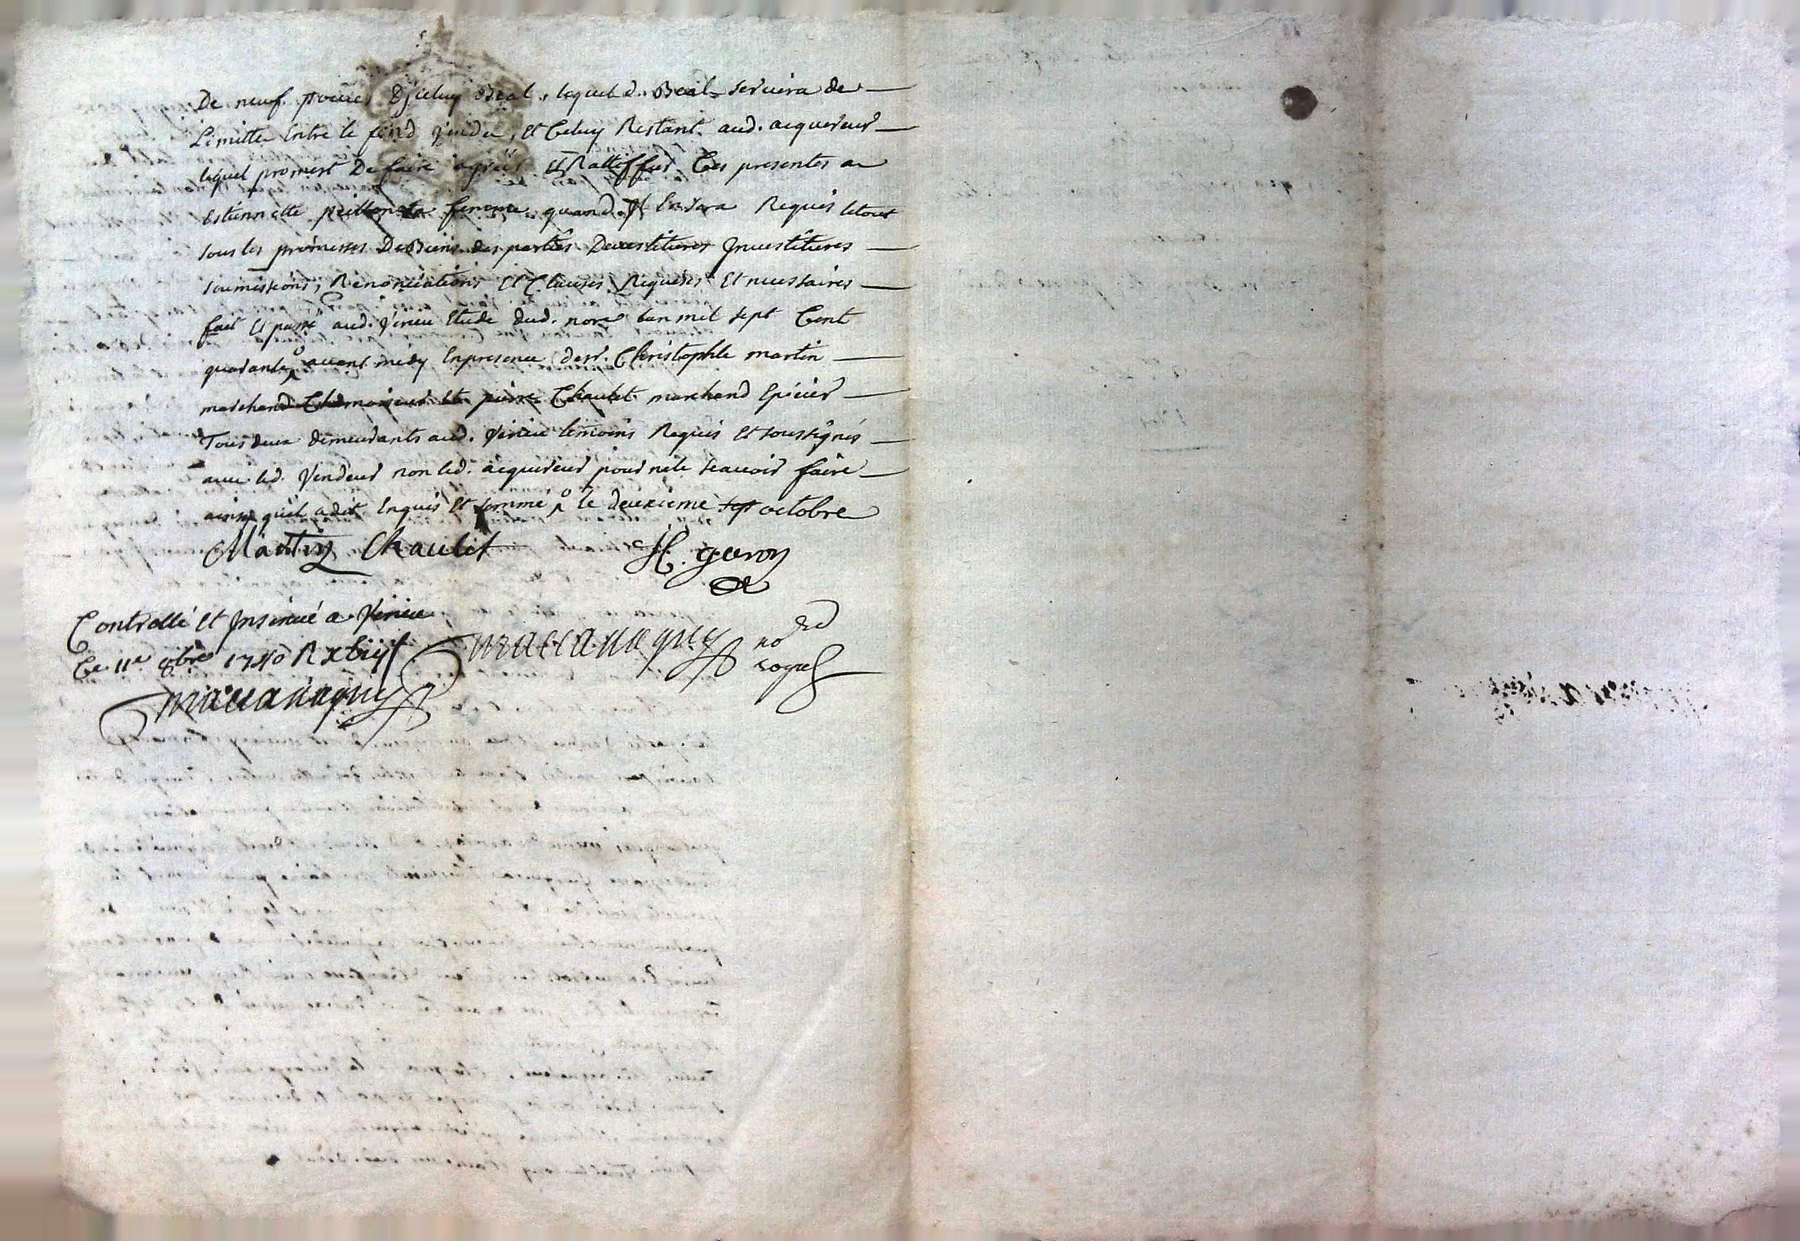 De neuf pouces D'jceluy Beal, lequel d. Beal servira de
Limitte Entre le fond vendu, et Celuy Restant aud. acquereur
lequel promest De faire agréer et Ratiffier Ces presentes a
Estiennette peillon sa femme quand Jl En sera Requis letout
sous les promesses De Biens des parties Devestitures Jnvestitures
soumissions, Renonciations et Clauses Requises Et necessaires
fait et passé aud. virieu Etude dud. nore Lan mil sept Cent
quarante avant midy Enpresence de sr. Christophle martin
marchand Chamoiseur et pierre Chaulet marchand Epicier
Tous deux demeurants aud. virieu temoins Requis et soussignés
avec led. vendeur non led. acquereur pour ne le scavoir faire
ainsy quil a dit Enquis Et sommé le deuxieme octobre
Martin Chaulet
H. geron
Controllé et Jnsinué a virieu
Ce 11e 8bre 1740 R
no
royal